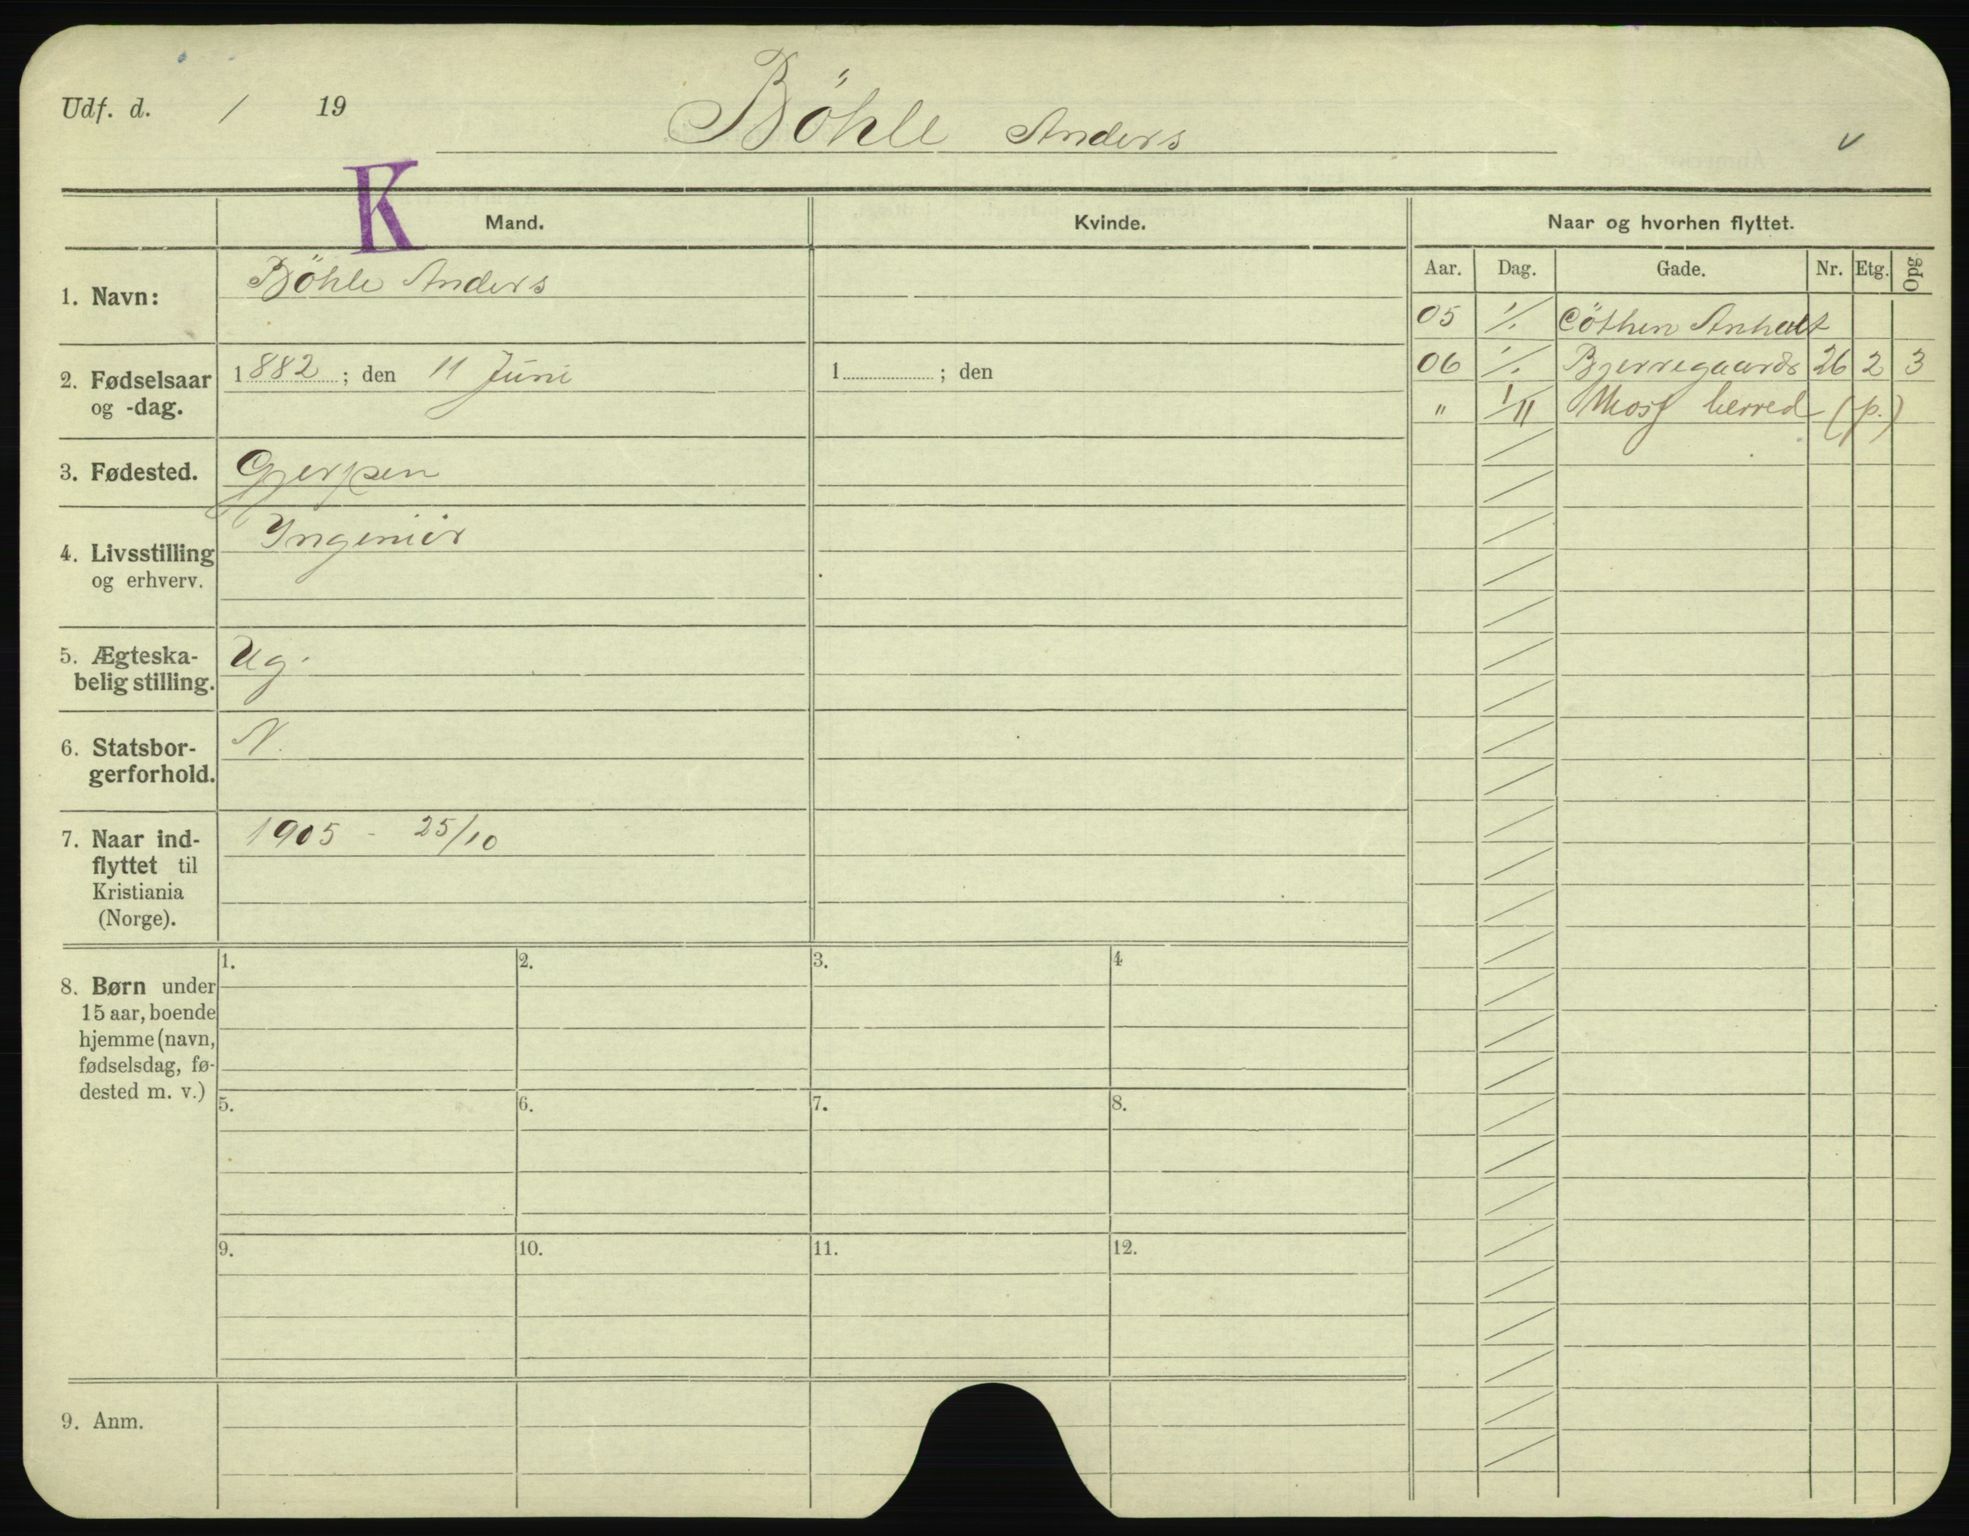 Udf. d. / 19
Böhle Anders
v
K
Mand.
Kvinde.
Naar og hvorhen flyttet.
Aar. Dag. Gade. Nr. Etg. Opg
1. Navn:
Böhle Anders
05 1/. Cöthen Anhalt
06 1/. Bjerregaards 26 2 3
" 1/11 Moss herred (p.)
2. Fødselsaar
og -dag.
1882 ; den 11 Juni
1 ; den
3. Fødested.
Gjerpen
4. Livsstilling
og erhverv.
Ingeniör
5. Ægteska-
belig stilling.
Ug.
6. Statsbor-
gerforhold.
N.
7. Naar ind-
flyttet til
Kristiania
(Norge).
1905 - 25/10
8. Børn under
15 aar, boende
hjemme (navn,
fødselsdag, fø-
dested m. v.)
1. 2. 3. 4
5. 6. 7. 8.
9. 10. 11. 12.
9. Anm.